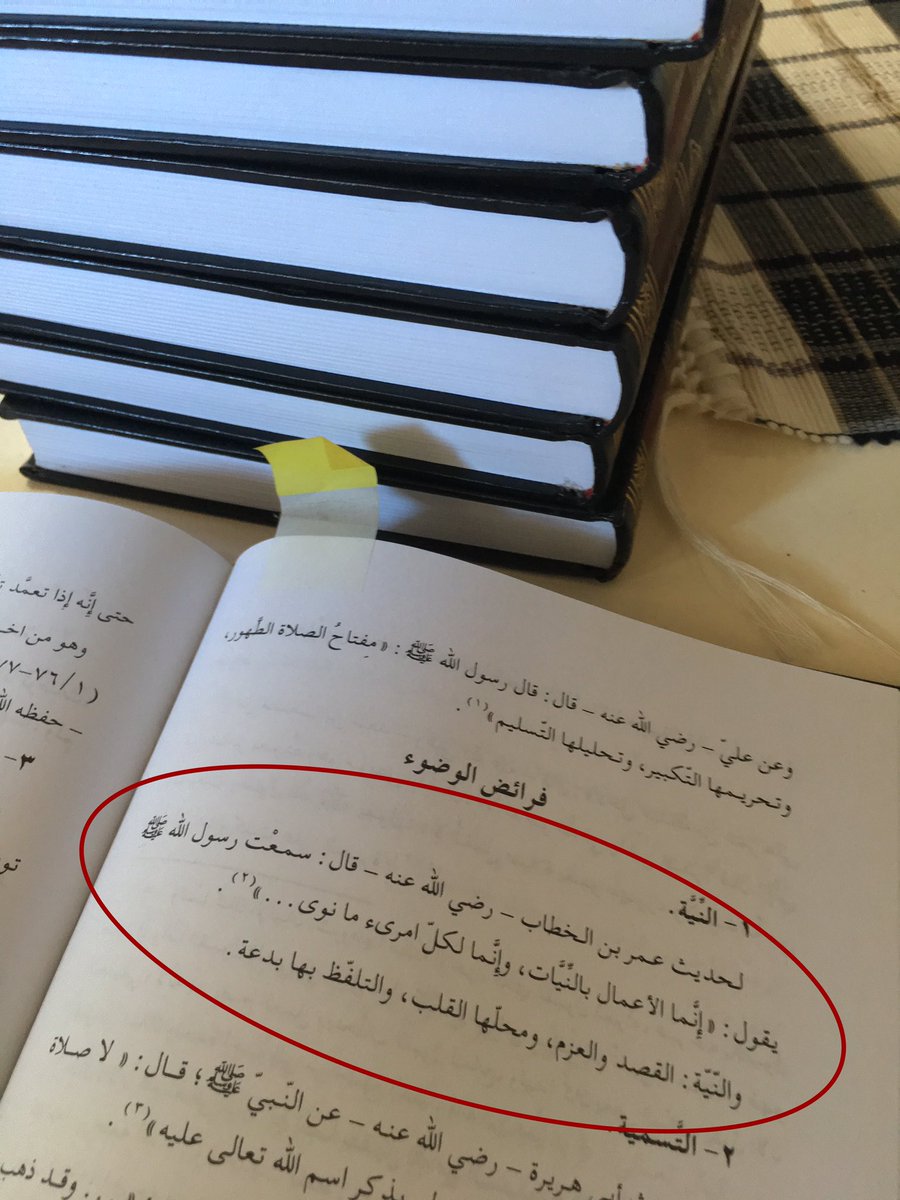 وعن عليّ – رضي الله عنه – قال: قال رسول الله ﷺ: «مِفتاحُ الصلاة الطَّهور،
وتحريمها التّكبير، وتحليلها التّسليم»(١).
فرائض الوضوء
١- النِّيَّة.
لحديث عمر بن الخطاب – رضي الله عنه – قال: سمعْت رسول الله ﷺ
يقول: «إِنَّما الأعمال بالنِّيَّات، وإِنَّما لكلّ امرىء ما نوى...»(٢).
والنّيّة: القصد والعزم، ومحلّها القلب، والتلفّظ بها بدعة.
٢- التَّسمية
أبي هريرة – رضي الله عنه – عن النّبيّ ﷺ؛ قال: «لا صلاة
يذكر اسم الله تعالى عليه»(٣).
وقد ذهب
حتى إِنَّه إِذا تعمَّد
وهو من
(٧٦/١-٧
– حفظه
٣-